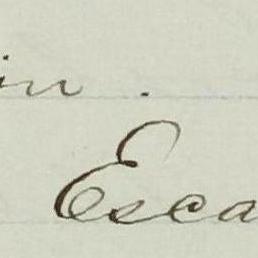 in .
Esca